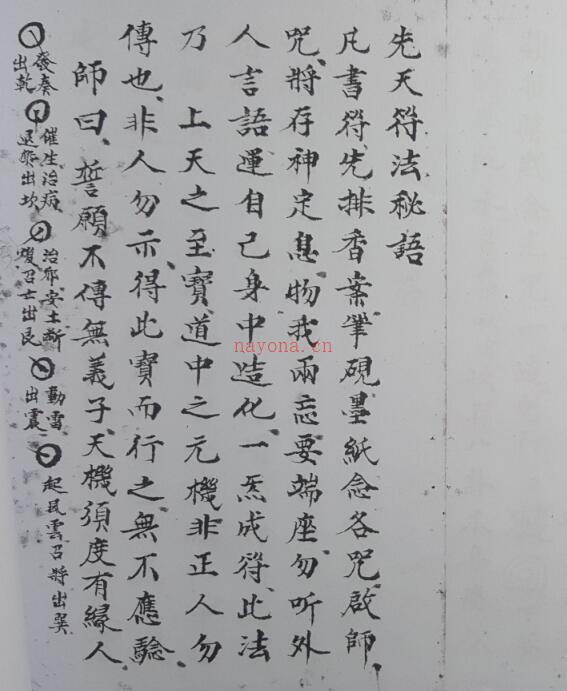 先天符法秘語
凡書符先排香案筆硯墨紙念各咒啟師、
咒、將存神定息物我兩忘要端座勿听外
人言語運自己身中造化一炁成符、此法
乃 上天之至寶道中之元機非正人勿
傳也、非人勿示得此寶而行之無不應驗、
師曰、誓願不傳無義子、天機須度有緣人、
發奏
出乾
催生治病、
退瘵出坎
治邪安土斷
後召亡出艮
動雷
出震
起風雲召將出巽
nayona.cn